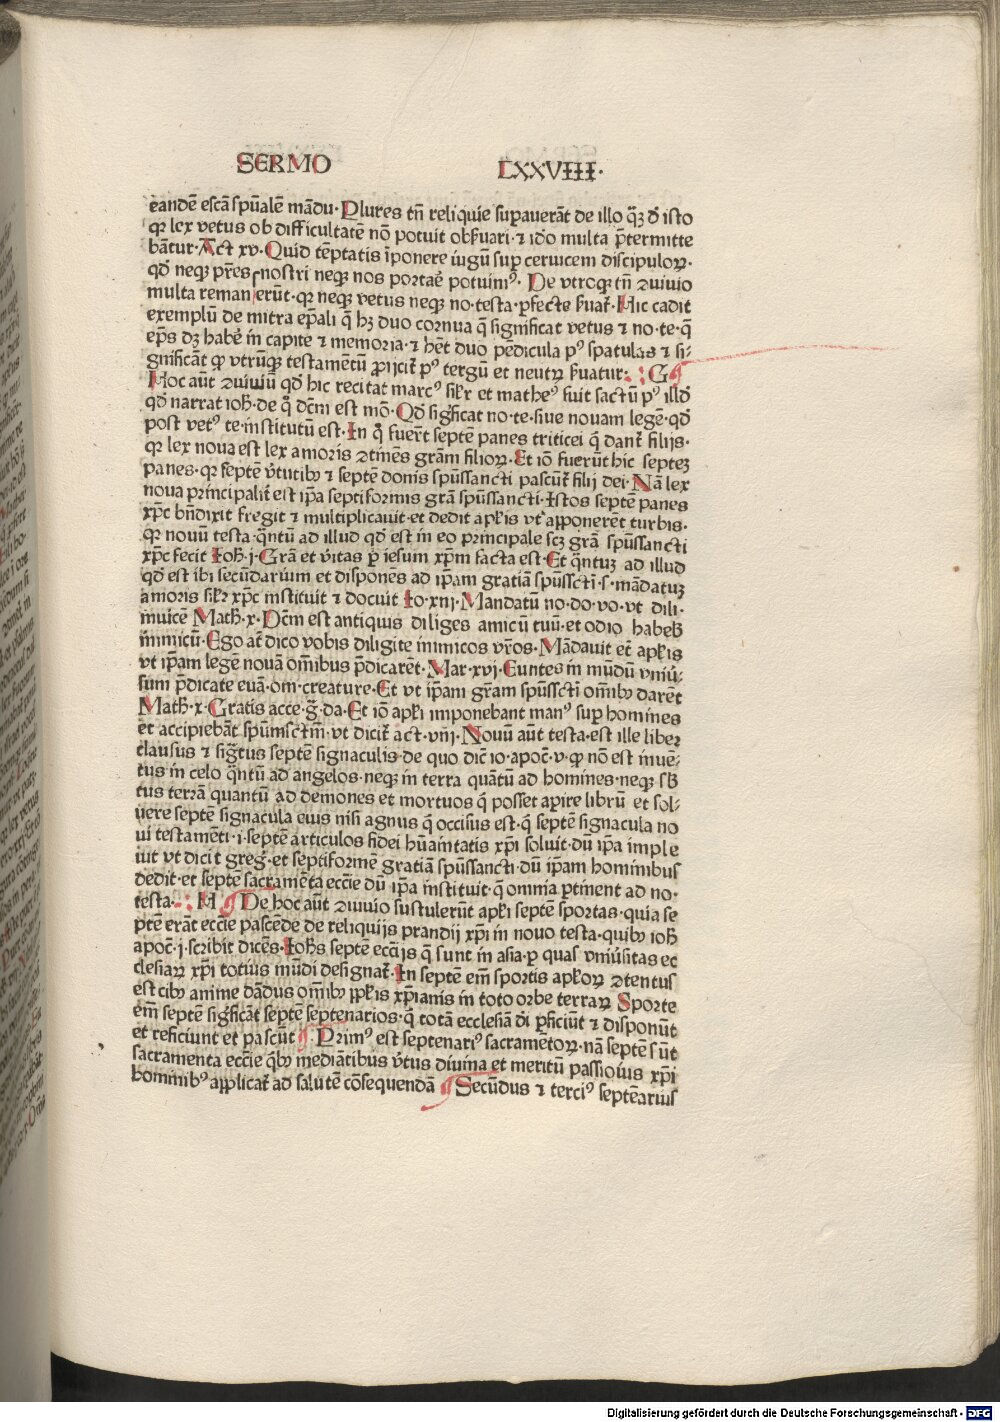 SERMO LXXVIII·
eandē escā spūalē mādu· Plures tñ reliquie supauerāt de illo q̄ꝫ d̄ isto
qꝛ lex vetus ob difficultatē nō potuit obẜuari· ⁊ iđo multa p̄termitte
bātur· Act xv· Quid tēptatis īponere iugū suꝑ ceruicem discipuloꝝ·
qđ neqꝫ pr̄es nostri neqꝫ nos portaē potuimꝰ· De vtroqꝫ tñ ꝯuiuio
multa remanserūt· qꝛ neqꝫ vetus neqꝫ no· testa· ꝑfecte ẜuaꝉ· Hic cadit
exemplū de mitra ep̄ali q̄ hꝫ duo cornua q̄ significat vetus ⁊ no· te· q̄
ep̄s dꝫ habē in capite ⁊ memoria· ⁊ hēt duo pēdicula pꝰ spatulas ⁊ si⸗
gnificāt ꝙ vtrūqꝫ testamētū ꝓijcit̄ pꝰ tergū et neutꝝ ẜuatur· G
Hoc aūt ꝯuiuiū qđ hic recitat marcꝰ siƚr et matheꝰ fuit factū pꝰ illđ
qđ narrat ioħ· de q̊ dc̄m est mō· Qđ sigficat no· te· siue nouam legē· qđ
post vetꝰ te· institutū est· In q̊ fuer̄t septē panes triticei q̄ dant̄ filijs·
qꝛ lex noua est lex amoris ꝯtinēs grām filioꝝ· Et iō fuerūt hic septeꝫ
panes· qꝛ septē v̄tutibꝫ ⁊ septē donis spūssancti pascūt̄ filij dei· Nā lex
noua principaliꝉ est ip̄a septiformis grā spūssancti· Istos septē panes
xp̄c bn̄dixit fregit ⁊ multiplicauit· et dedit apƚis vt apponerēt turbis·
qꝛ nouū testa· q̄ntū ad illud qđ est in eo principale scꝫ grā spūssancti
xp̄c fecit Ioħ· j· Grā et v̄itas ꝑ iesum xp̄m facta est· Et q̄ntuꝫ ad illud
qđ est ibi secūdarium et disponēs ad ip̄am gratiā spūsscti· s· mādatuꝫ
amoris siƚr xp̄c instituit ⁊ docuit Io· xiij· Mandatū no· do· vo· vt dili·
inuicē Matħ· x· Dc̄m est antiquis diliges amicū tuū· et odio habeb̄
inimicū· Ego at̄ dico vobis diligite inimicos vr̄os· Mādauit et̄ apƚis
vt ip̄am legē nouā om̄ibus p̄dicarēt· Mar· xvj· Euntes in mūdū vniū⸗
sum p̄dicate euā· om· creature· Et vt ip̄am gr̄am spūsscti om̄ibꝫ darēt
Matħ· x· Gratis acce· g̃· da· Et iō apƚi imponebant manꝰ suꝑ homines
et accipiebāt spūmsctm̄· vt dicit̄ act· viij· Nouū aūt testa· est ille liber
clausus ⁊ sig̃tus septē signaculis· de quo dic̄ io· apoc̄· v· ꝙ nō est inuē⸗
tus in celo q̄ntū ad angelos· neqꝫ in terra quātū ad homines· neqꝫ sb̄
tus terrā quantū ad demones et mortuos q̄ posset apire librū et sol⸗
uere septē signacula eius nisi agnus q̄ occisus est· q̄ septē signacula no
ui testamēti· i· septē articulos fidei hūanitatis xp̄i soluit· dū ip̄a imple
uit vt dicit greg̃· et septiformē gratiā spūssancti· dū ip̄am hominibus
dedit· et septē sacramēta ecc̄ie dū ip̄a instituit· q̄ omnia ꝑtinent ad no·
testa· H ¶ De hoc aūt ꝯuiuio sustulerūt apƚi septē sportas· quia se
ptē erāt ecc̄ie pascēde de reliquijs prandij xp̄i in nouo testa· quibꝫ ioħ
apoc̄· j· scribit dicēs· Ioħs septē ecc̄ijs q̄ sunt in asia· ꝑ quas vniūsitas ec
clesiaꝝ xp̄i totius mūdi designaꝉ· In septē em̄ sportis apƚoꝝ ꝯtentus
est cibꝫ anime dādus om̄ibꝫ ppƚis xp̄ianis in toto orbe terraꝝ Sporte
em̄ septē sig̃ficāt septē septenarios· q̄ totā ecclesiā di ꝑficiūt ⁊ disponūt
et reficiunt et pascūt ¶ Primꝰ est septenariꝰ sacramētoꝝ· nā septē sūt
sacramenta ecc̄ie q̄bꝫ mediātibus v̄tus diuina et meritū passionis xp̄i
hominibꝰ applicat̄ ad salutē cōsequendā ¶ Secūdus ⁊ terciꝰ septēarius
Digitalisierung gefördert durch die Deutsche Forschungsgemeinschaft - DFG